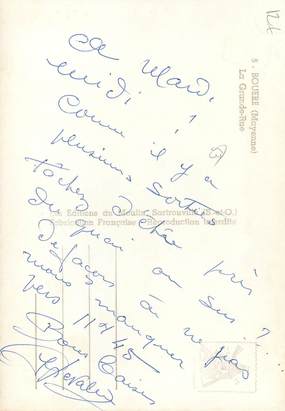 12€
5 - BOUERE (Mayenne)
La Grande-Rue
Les Editions du Moulin, Sartrouville (S.-et-O.)
Fabrication Française - Reproduction interdite
A Mardi
midi !
Comme il y a
plusieurs sorties
tâchez d'être près
du quai ou sur ?
de façon à ne pas
nous manquer
vers 11h45
Bons baisers